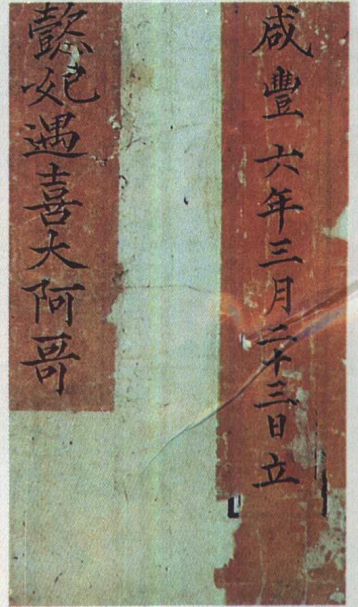 咸豐六年三月二十三日立
懿妃遇喜大阿哥